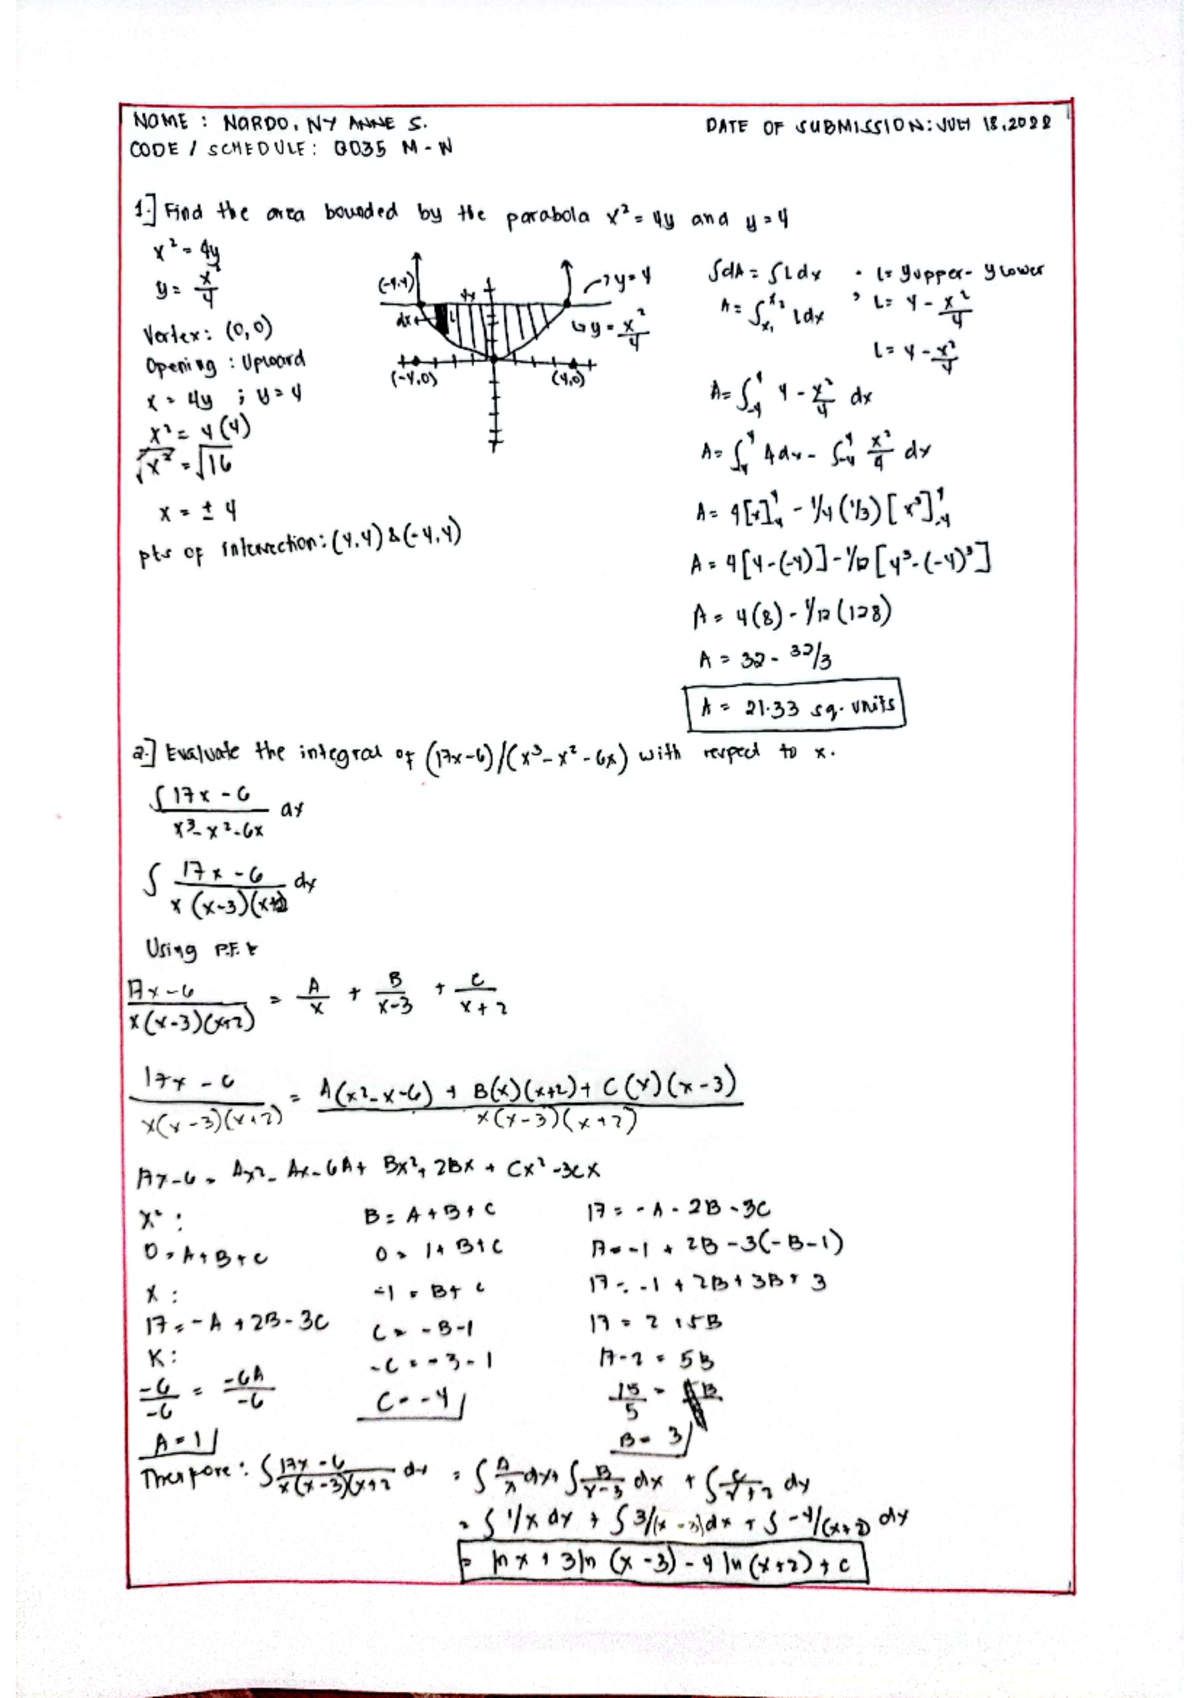 NAME : NARDO, NY ANNE S.
DATE OF SUBMISSION: JULY 18, 2022
CODE / SCHEDULE: B035 M - W
1.] Find the area bounded by the parabola x² = 4y and y = 4
x² = 4y
y = x²/4
Vertex: (0,0)
Opening : Upward
x = 4y ; y = 4
x² = 4(4)
√x² = √16
x = ± 4
pts of intersection: (4,4) & (-4,4)
(-4,4)
y = 4
dx
L
y = x²/4
(-4,0)
(4,0)
∫dA = ∫Ldx
• L = y upper - y lower
A = ∫x₁^x₂ Ldx
L = 4 - x²/4
L = 4 - x²/4
A = ∫-4^4 4 - x²/4 dx
A = ∫-4^4 4dx - ∫-4^4 x²/4 dx
A = 4[x]-4^4 - 1/4 (1/3) [x³]-4^4
A = 4[4-(-4)] - 1/12 [4³-(-4)³]
A = 4(8) - 1/12 (128)
A = 32 - 32/3
A = 21.33 sq. units
2.] Evaluate the integral of (17x-6)/(x³-x²-6x) with respect to x.
∫ 17x - 6 / x³-x²-6x dx
∫ 17x - 6 / x(x-3)(x+2) dx
Using P.F.
17x-6 / x(x-3)(x+2) = A/x + B/x-3 + C/x+2
17x - 6 / x(x-3)(x+2) = A(x²-x-6) + B(x)(x+2) + C(x)(x-3) / x(x-3)(x+2)
17x-6 = Ax² - Ax - 6A + Bx² + 2Bx + Cx² - 3Cx
x² :
0 = A+B+C
x :
17 = -A + 2B - 3C
K :
-6/-6 = -6A/-6
A = 1
B = A + B + C
0 = 1 + B + C
-1 = B + C
C = -B-1
-C = -3-1
C = -4
17 = -A - 2B - 3C
17 = -1 + 2B - 3(-B-1)
17 = -1 + 2B + 3B + 3
17 = 2 + 5B
17-2 = 5B
15/5 = 5B
B = 3
Therefore : ∫ 17x-6 / x(x-3)(x+2 dx = ∫ A/x dx + ∫ B/x-3 dx + ∫ C/x+2 dx
= ∫ 1/x dx + ∫ 3/(x-3)dx + ∫ -4/(x+2) dx
= ln x + 3ln (x-3) - 4 ln (x+2) + C